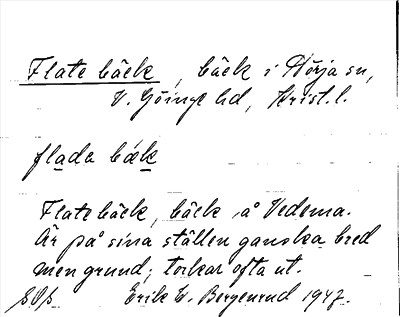 Flate bäck, bäck i Hörja sn,
V. Göinge hd, Krist. l.
flada bæk
Flate bäck, bäck å Vedema.
Är på sina ställen ganska bred
men grund; torkar ofta ut.
Erik C. Bergenrud 1947.